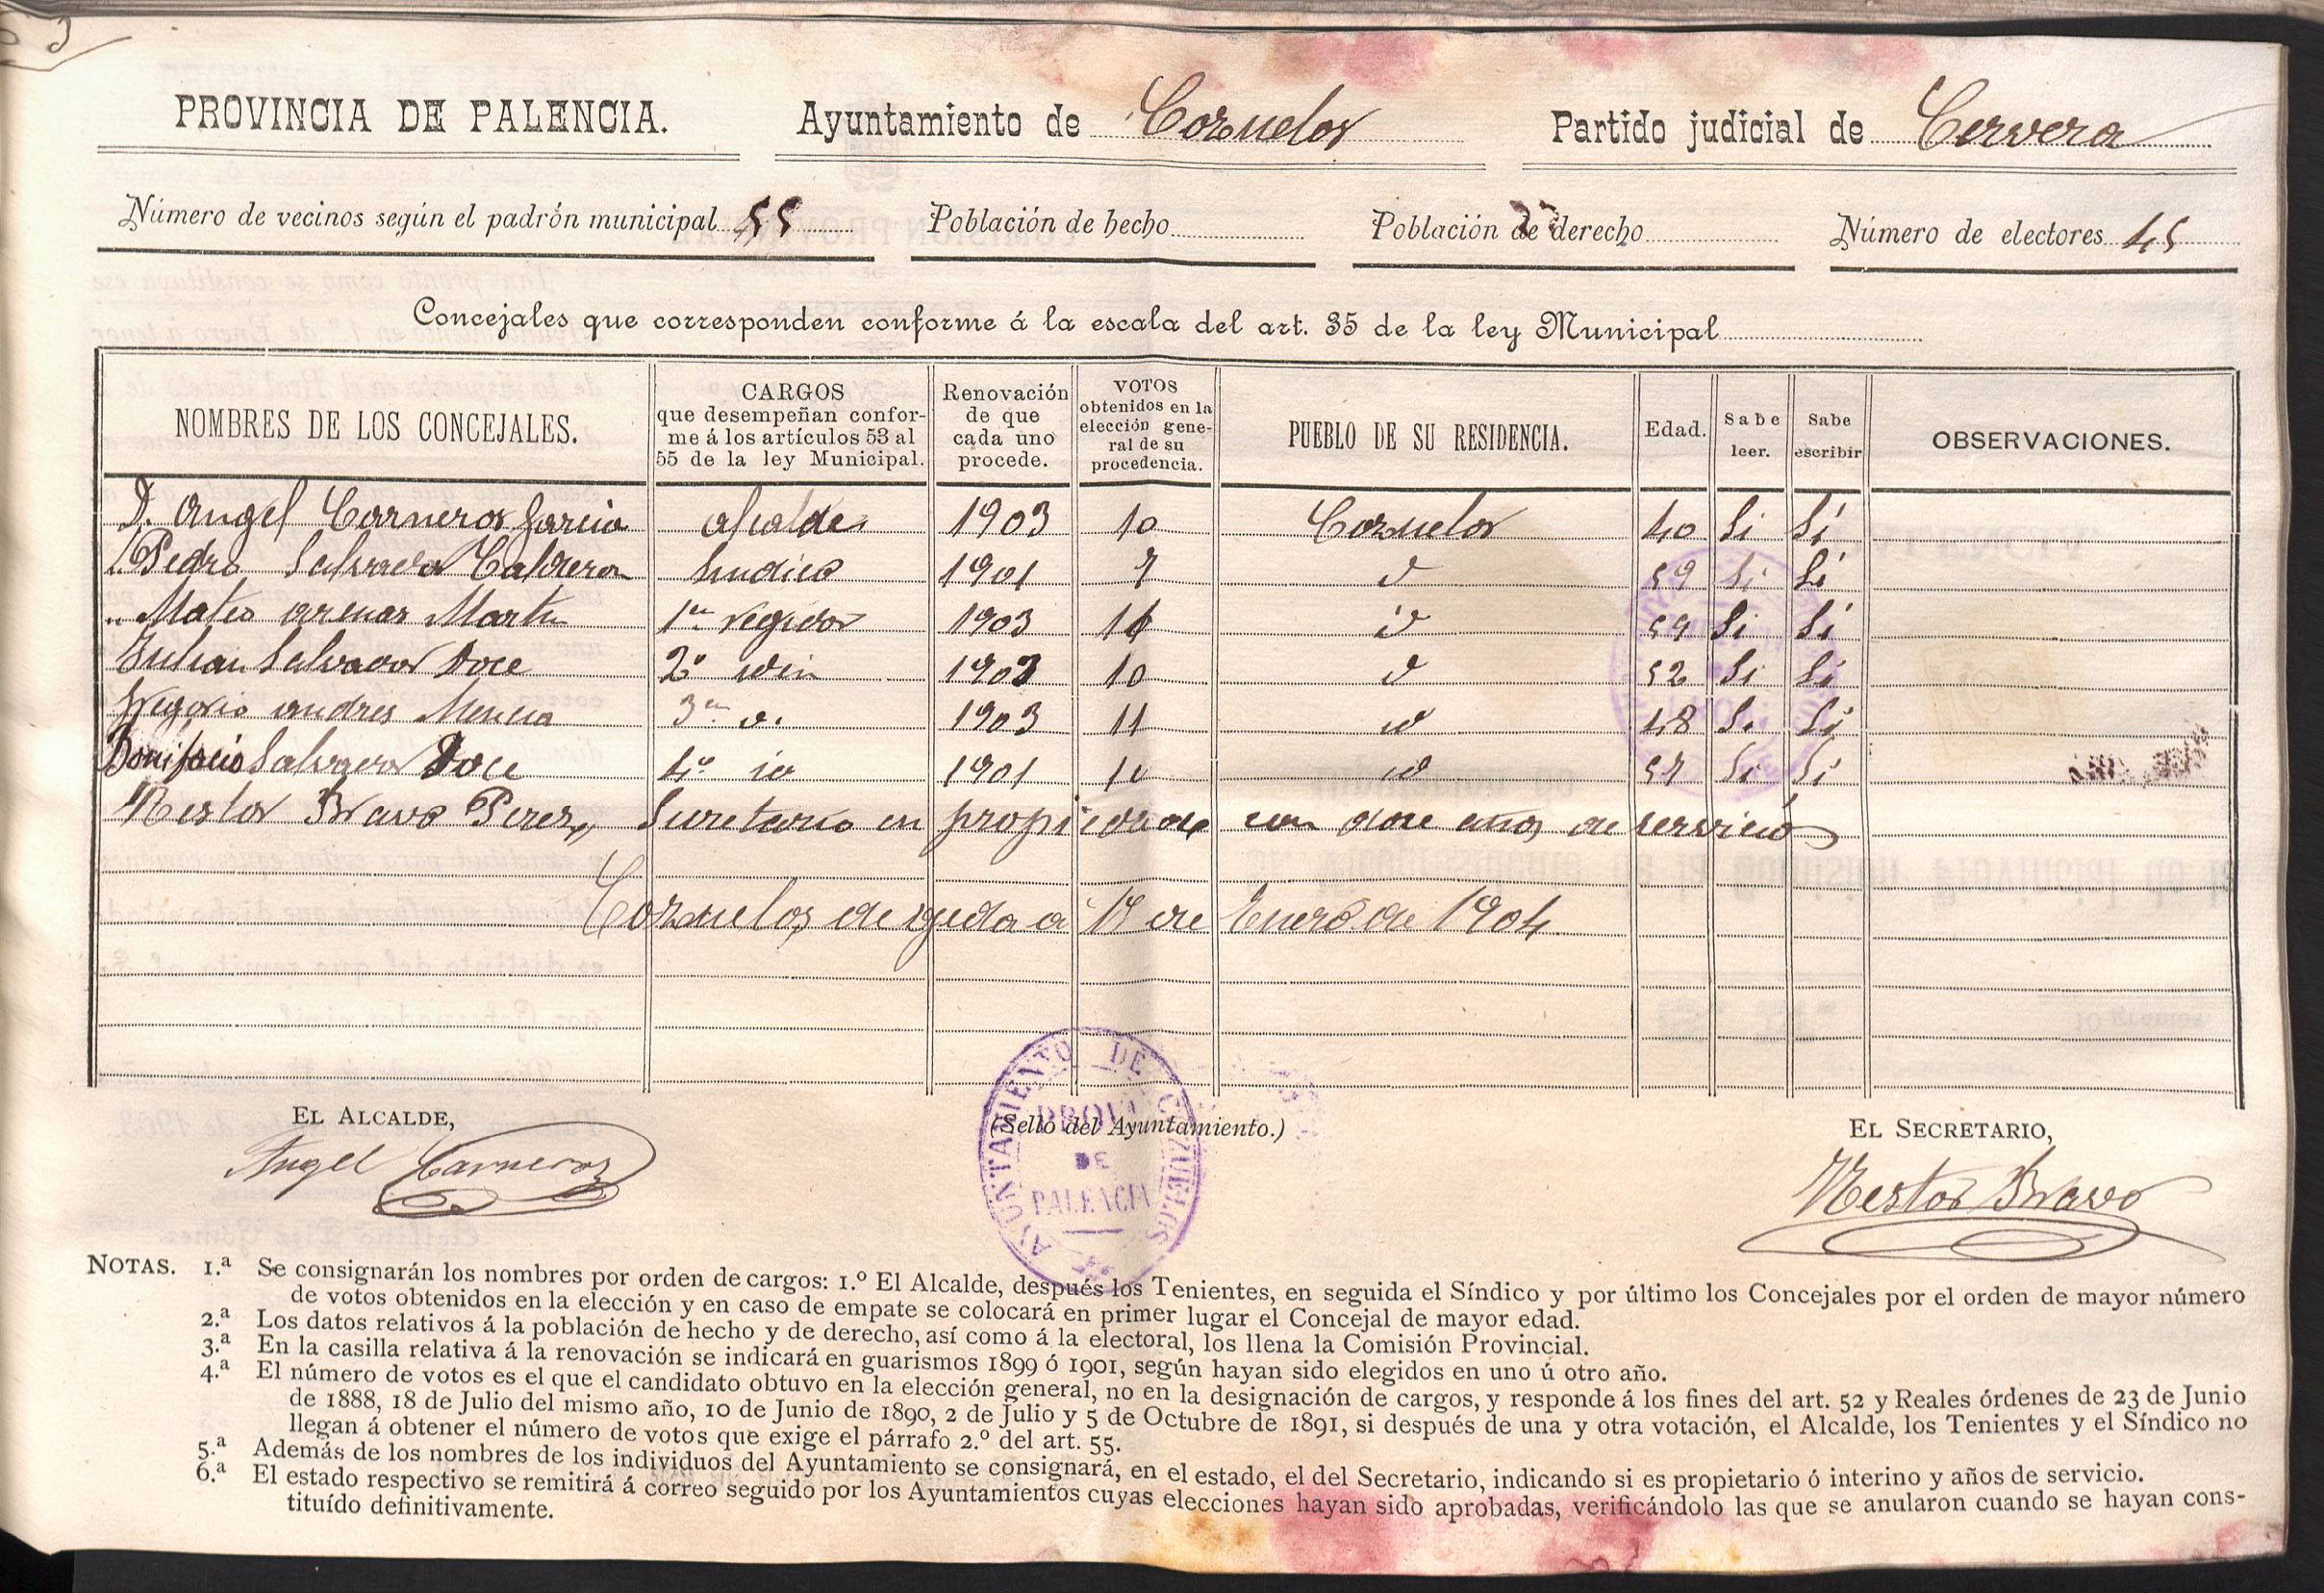 PROVINCIA DE PALENCIA. Ayuntamiento de Cozuelos Partido judicial de Cervera
Número de vecinos según el padrón municipal 55 Población de hecho Población de derecho Número de electores 45
Concejales que corresponden conforme á la escala del art. 35 de la ley Municipal
NOMBRES DE LOS CONCEJALES. CARGOS que desempeñan confor- me á los artículos 53 al 55 de la ley Municipal. Renovación de que cada uno procede. VOTOS obtenidos en la elección gene- ral de su procedencia. PUEBLO DE SU RESIDENCIA. Edad. Sabe leer. Sabe escribir OBSERVACIONES.
D. Angel Carneros Garcia alcalde 1903 10 Cozuelos 40 Si Sí
" Pedro Salvador Calderon Sindico 1901 9 id 59 Si Sí
" Mateo arenas Martin 1er regidor 1903 id Si Sí
Julian Salvador Doce 2º idem 1903 10 id 52 Si Sí
Gregorio andres Mencia 3er id. 1903 11 id 48 Si Sí
Bonifacio Salvador Doce 4º id 1901 10 id Si Sí
Nestor Bravo Perez, Secretario en propiedad con doce años de servicio
Cozuelos de ojeda a de Enero de 1904
EL ALCALDE, (Sello del Ayuntamiento.) EL SECRETARIO,
Angel Carneros Nestor Bravo
AYUNTAMIENTO DE COZUELOS
PROVA
DE
PALENCIA
NOTAS. 1.ª Se consignarán los nombres por orden de cargos: 1.º El Alcalde, después los Tenientes, en seguida el Síndico y por último los Concejales por el orden de mayor número
de votos obtenidos en la elección y en caso de empate se colocará en primer lugar el Concejal de mayor edad.
2.ª Los datos relativos á la población de hecho y de derecho, así como á la electoral, los llena la Comisión Provincial.
3.ª En la casilla relativa á la renovación se indicará en guarismos 1899 ó 1901, según hayan sido elegidos en uno ú otro año.
4.ª El número de votos es el que el candidato obtuvo en la elección general, no en la designación de cargos, y responde á los fines del art. 52 y Reales órdenes de 23 de Junio
de 1888, 18 de Julio del mismo año, 10 de Junio de 1890, 2 de Julio y 5 de Octubre de 1891, si después de una y otra votación, el Alcalde, los Tenientes y el Síndico no
llegan á obtener el número de votos que exige el párrafo 2.º del art. 55.
5.ª Además de los nombres de los individuos del Ayuntamiento se consignará, en el estado, el del Secretario, indicando si es propietario ó interino y años de servicio.
6.ª El estado respectivo se remitirá á correo seguido por los Ayuntamientos cuyas elecciones hayan sido aprobadas, verificándolo las que se anularon cuando se hayan cons-
tituído definitivamente.